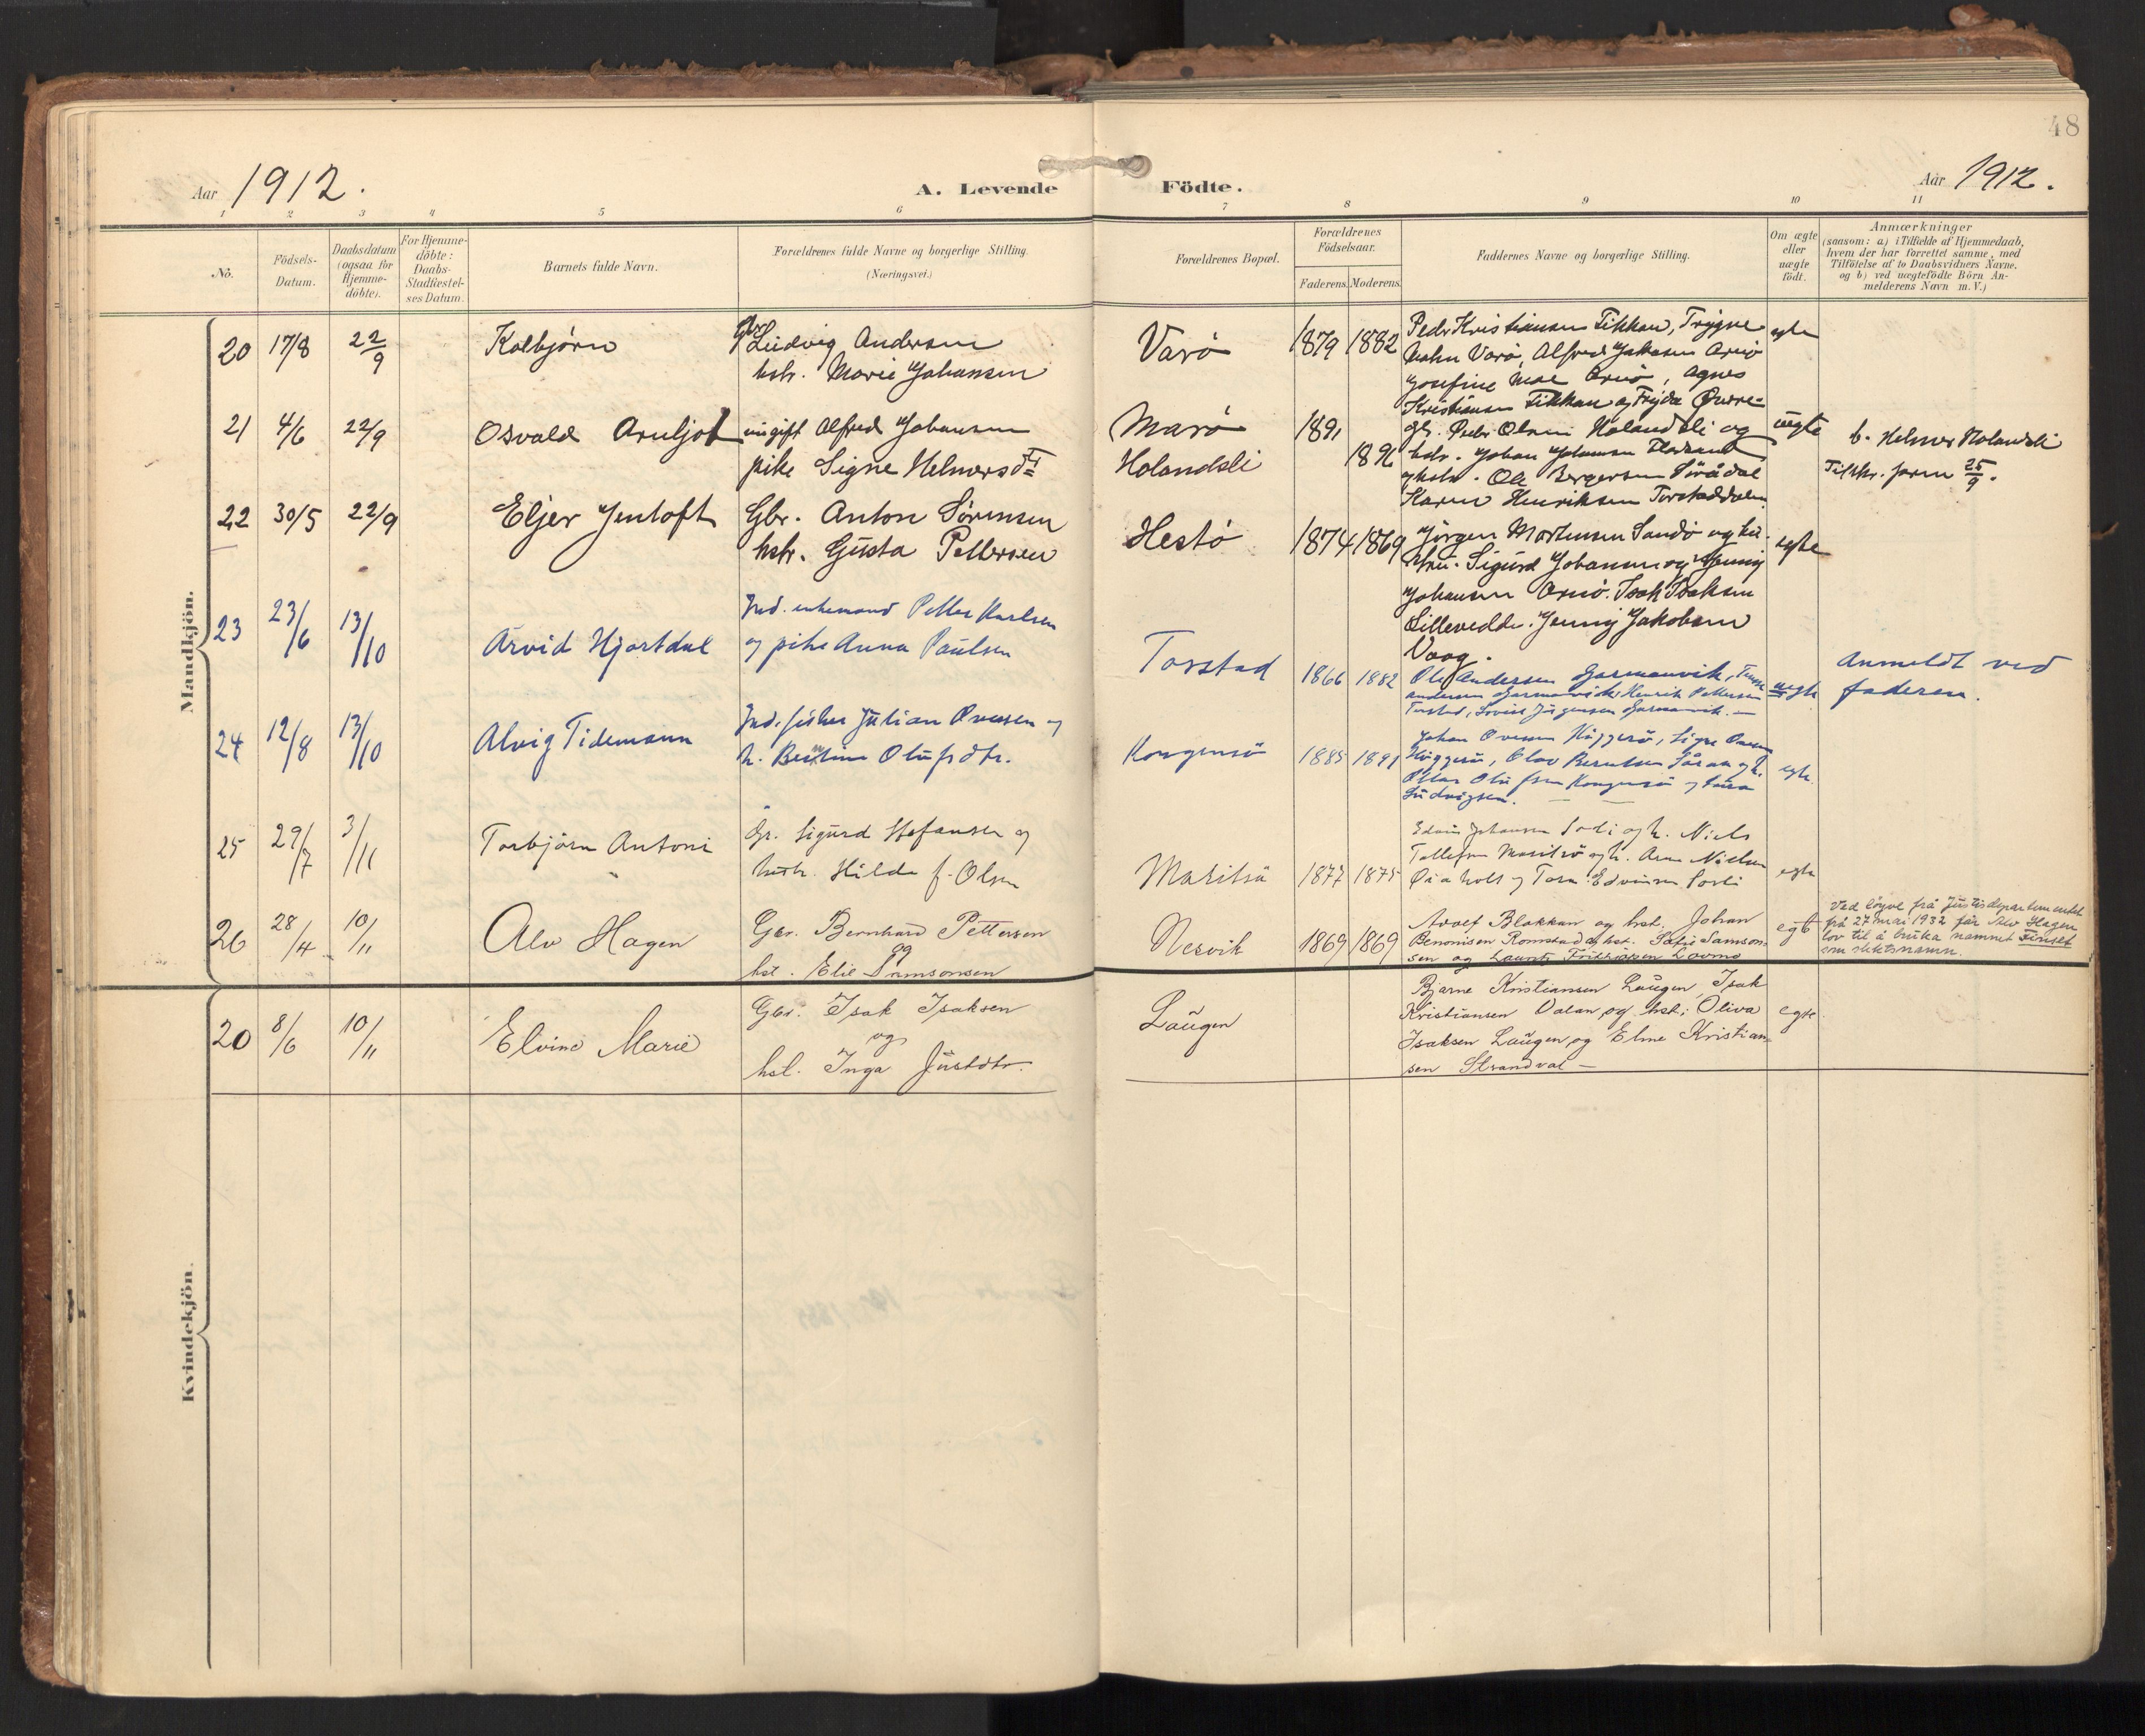 48
Aar 1912.
A. Levende Födte.
Aar 1912.
1 2 3 4 5 6 7 8 9 10 11
No.
Födsels-
Datum.
Daabsdatum
(ogsaa for
Hjemme-
döbte).
For Hjemme-
döbte:
Daabs-
Stadfæstel-
ses Datum.
Barnets fulde Navn.
Forældrenes fulde Navne og borgerlige Stilling.
(Næringsvei.)
Forældrenes Bopæl.
Forældrenes
Födselsaar.
Faderens. Moderens.
Faddernes Navne og borgerlige Stilling.
Om ægte
eller
uægte
födt.
Anmærkninger
(saasom: a) i Tilfælde af Hjemmedaab,
hvem der har forrettet samme, med
Tilföielse af to Daabsvidners Navne,
og b) ved uægtefödte Börn An-
melderens Navn m. V.)
Mandkjön.
20 17/8 22/9 Kolbjørn
Gbr. Ludvig Andersen
hstr. Marie Johansen
Varø 1879 1882
Peder Kristiansen Tikkan, Trygve
Varø, Alfred Jakobsen Arnø
Josefine Moe Arnø, Agnes
Kristiansen Tikkan og Fryda
egte
21 4/6 22/9 Osvald Arnljot
ungift Alfred Johansen
pike Signe Helmersdtr
Marø
Holandsli
1891
1896
gb. Peder Olsen Holandsli og
hstr. Johan Johansen
og hstr. Ole Bergersen
Karen Henriksen Torstaddalen
uegte
b. Helmer Holandsli
Tilskr. faren 25/9.
22 30/5 22/9 Eljer Jentoft
Gbr. Anton Sørensen
hstr. Gusta Pettersen
Hestø 1874 1869
Jørgen Mortensen Sandø og hu-
stru. Sigurd Johansen og Jenny
Johansen Arnø. Isak Isaksen
Lillevedde. Jenny Jakobsen
Vaag.
egte
23 23/6 13/10 Arvid Hjartdal
Ind. enkemand Petter Karlsen
og pike Anna Paulsen
Torstad 1866 1882
Ole Andersen Garmannvik,
Andersen Garmannvik, Henrik Pettersen
Torstad, Lovise Jørgensen Garmannvik. —
uegte
Anmeldt ved
faderen.
24 12/8 13/10 Alvig Tidemann
Ind. fisker Julian Ovesen og
h. Bentine Olufsdtr.
Kongensø 1885 1891
Johan Ovesen Huggerø, Signe Ovesen
Huggerø, Olav Berntsen og h.
Ottar Olufsen Kongensø og
Ludvigsen. — —
egte
25 29/7 3/11 Torbjörn Antoni
Gr. Sigurd Stefansen og
hustr. Hilda f. Olsen
Maritsø 1877 1875
Edvin Johansen Sorli og h. Niels
Tollefsen Maritsø og h. Arne Nielsen
og Tora Edvinsen Sorli
egte
26 28/4 10/11 Alv Hagen
Gbr. Bernhard Pettersen
og
hst. Elie Samsonsen
Nesvik 1869 1869
Adolf Blakkan og hst. Johan
Benonisen Romstad og hst. Sofie Samson-
sen og Fredriksen Lovmo
egte
Ved løyve frå Justisdepartementet
frå 27 mai 1932 får Alv Hagen
lov til å bruka namnet Finset
som slektsnamn.
Kvindekjön.
20 8/6 10/11 Elvine Marie
Gbr. Isak Isaksen
og
hst. Inga Justdtr.
Laugen
Bjarne Kristiansen Laugen, Isak
Kristiansen Dalan og hst; Oliva
Isaksen Laugen, og Elme Kristian-
sen Strandval —
egte.